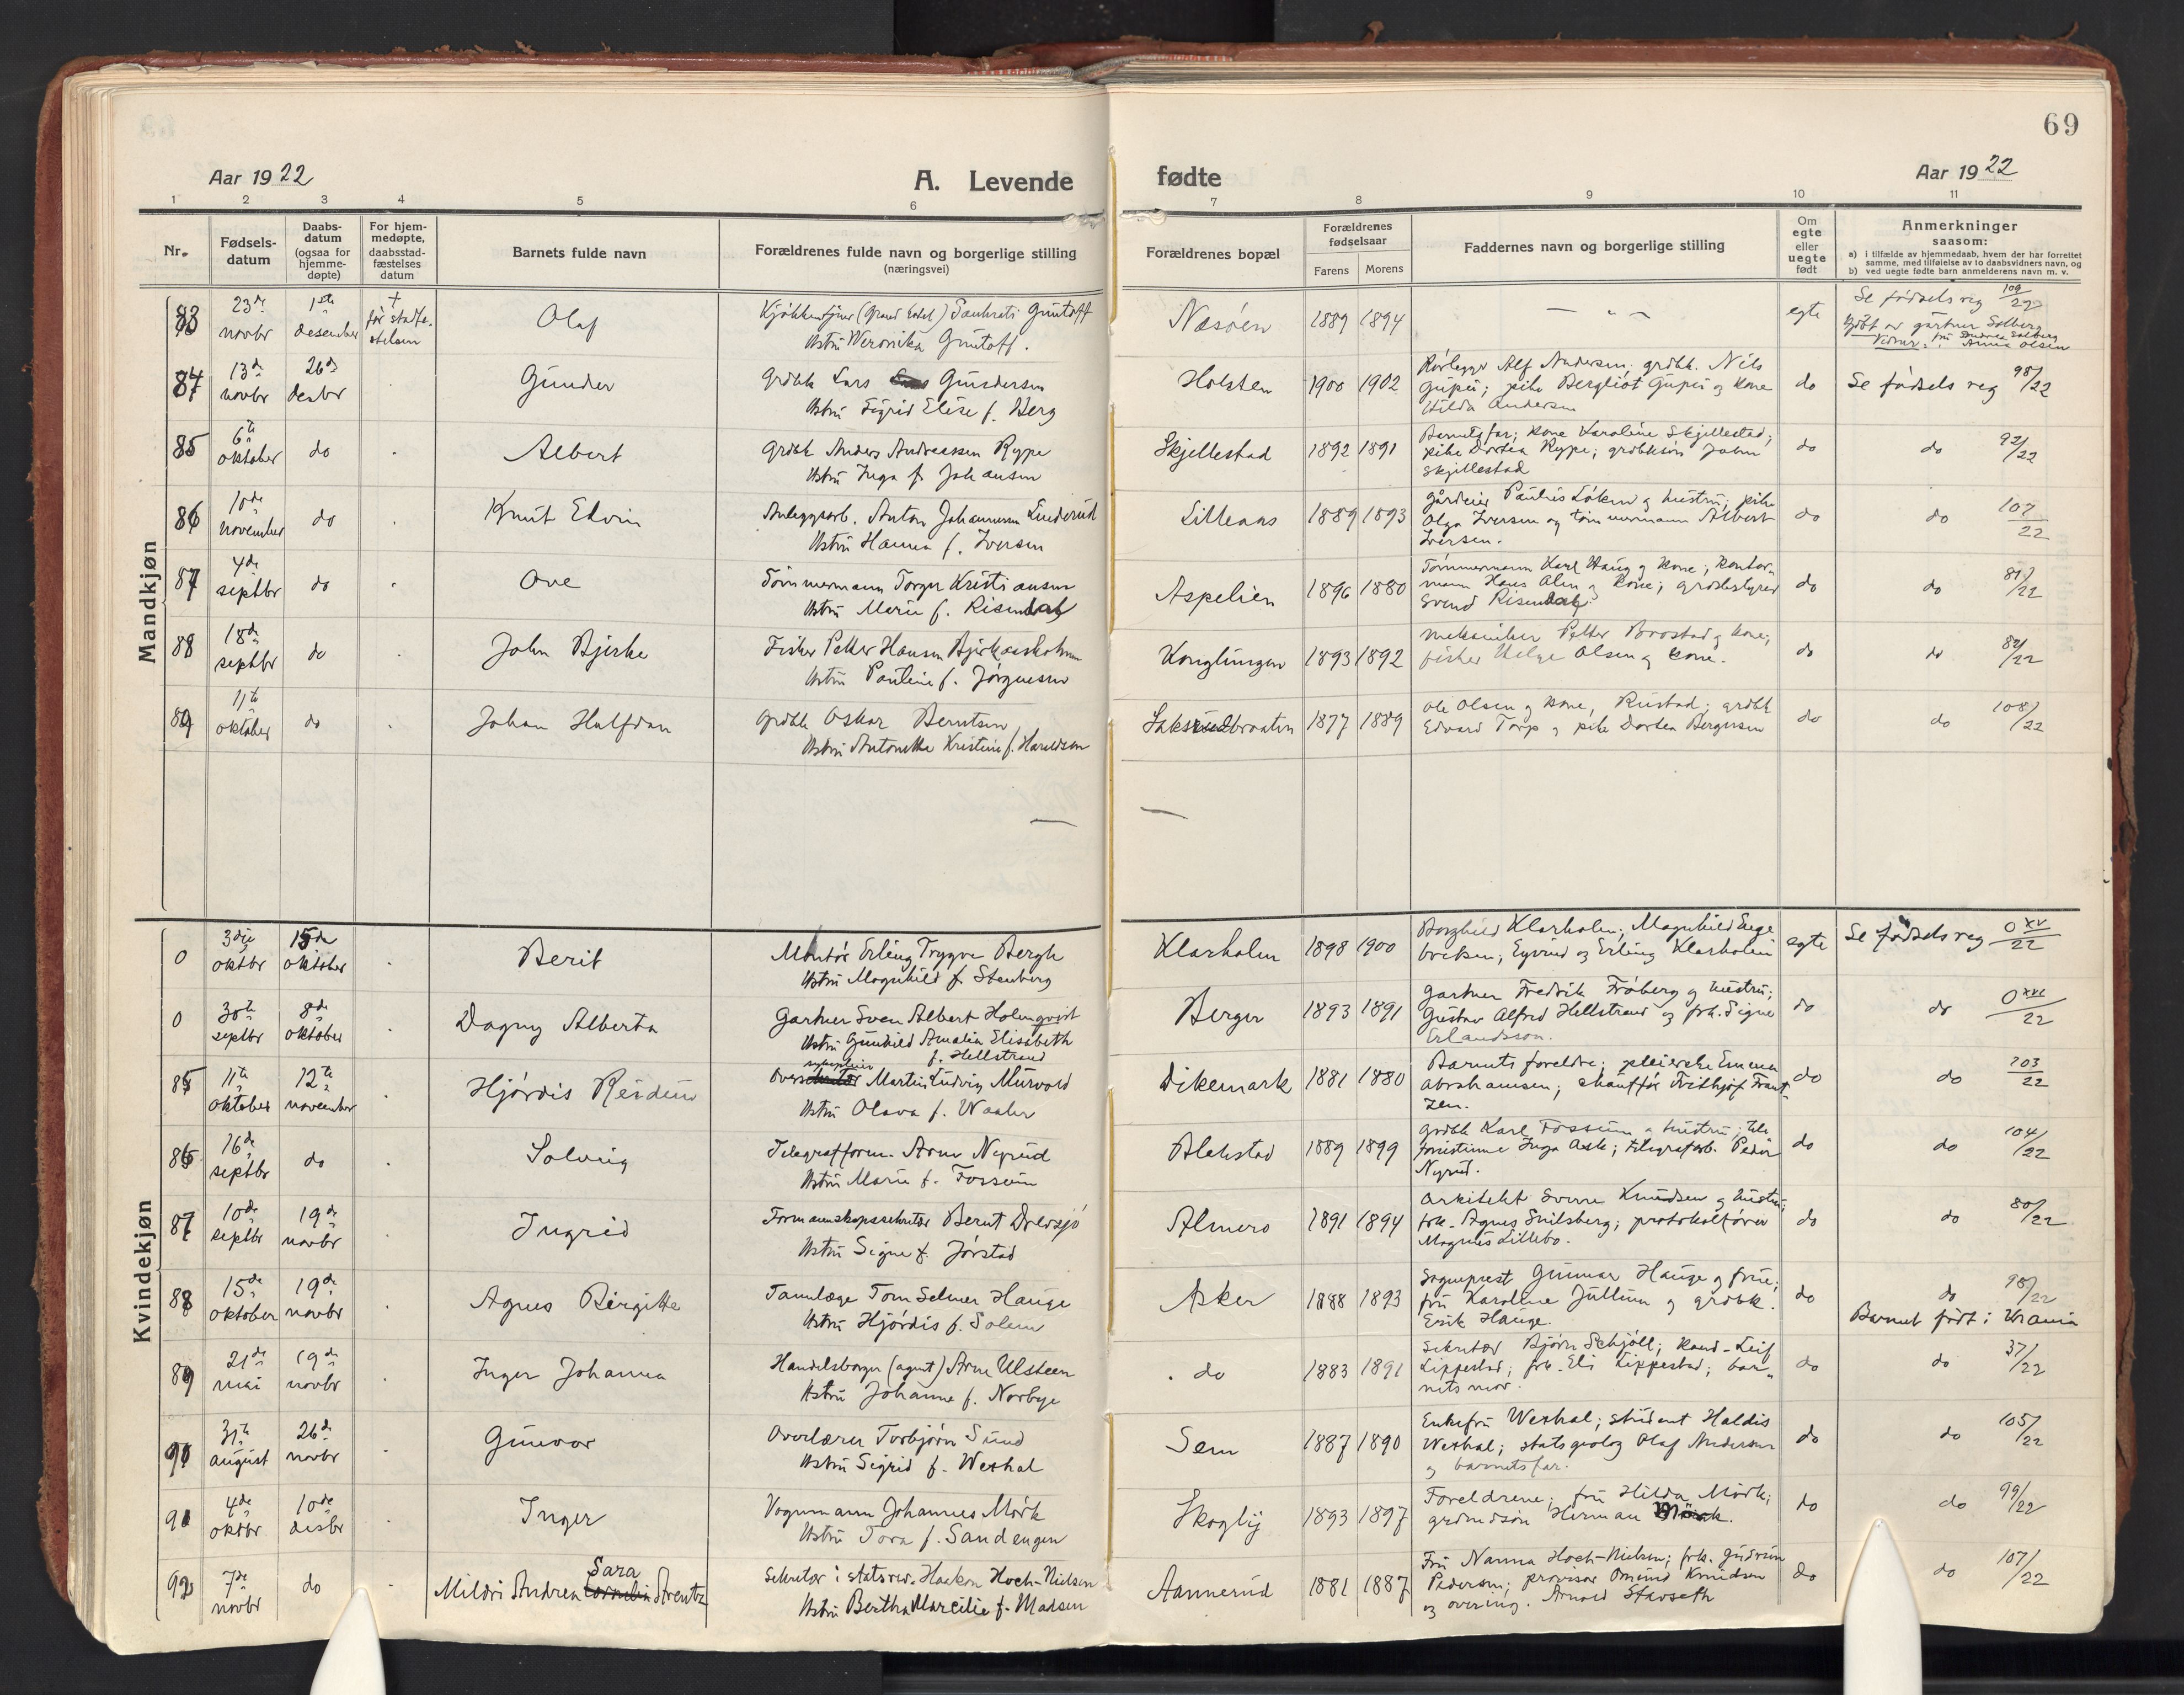 69
Aar 1922
A. Levende fødte
Aar 1922
1 2 3 4 5 6 7 8 9 10 11
Nr.
Fødsels-
datum
Daabs-
datum
(ogsaa for
hjemme-
døpte)
For hjem-
medøpte,
daabsstad-
fæstelses
datum
Barnets fulde navn
Forældrenes fulde navn og borgerlige stilling
(næringsvei)
Forældrenes bopæl
Forældrenes
fødselsaar
Farens Morens
Faddernes navn og borgerlige stilling
Om
egte
eller
uegte
født
Anmerkninger
saasom:
a) i tilfælde av hjemmedaab, hvem der har forrettet
samme, med tilføielse av to daabsvidners navn, og
b) ved uegte fødte barn anmelderens navn m. v.
Mandkjøn
83 23de novbr 1ste desember
† før stadfe-
stelsen
Olaf
(Grand Hotel) Pankrati Guntoff
Hstru Weronika Guntoff.
Næsøen 1889 1894 — " — egte
Se fødsels reg 109/22
døbt av gartner Solberg
Vidner: fru Solberg
Anna Olsen
84 13de novbr 26de desbr
Gunder
Grdbk Lars Gundersen
Hstru Sigrid Elise f. Berg
Holsten 1900 1902
Rørlegger Alf Andersen; grdbk. Nils
Gupu; pike Bergliot Gupu og kone
Hilda Andersen
do Se fødsels reg 98/22
85 6te oktober do
Albert
Grdbk Anders Andreassen Rype
Hstru Inga f. Johansen
Skjellestad 1892 1891
Barnets far; kone Karoline Skjellestad;
pike Dortea Rype; grdbksøn John
Skjellestad
do do 92/22
86 10de november do
Knut Edvin
Anleggsarb. Anton Johannesen Linderud
Hstru Hanna f. Iversen
Lilleaas 1889 1893
Gårdeier Paulus Løken og hustru; pike
Olga Iversen og tømmermann Albert
Iversen.
do do 107/22
87 4de septbr do
Ove
Tømmermann Torger Kristiansen
Hstru Merie f. Risendal
Aspelien 1896 1880
Tømmermann Karl Haug og kone; kontor-
mann Hans Alm og kone; grdbestyrer
Svend Risendal.
do do 81/22
88 18de septbr do
John Bjerke
Fisker Petter Hansen Bjerkaasholmen
Hstru Pauline f. Jørgensen
Konglungen 1893 1892
Mekaniker Petter Brostad og kone;
fisker Helge Olsen og kone.
do do 82/22
89 11te oktober do
Johan Halfdan
Grdbk Oskar Berntsen
Hstru Antonette Kristine f. Haraldsen
Laksrudbraaten 1877 1889
Ole Olsen og kone, Rustad; grdbk
Edvard Torp og pike Dortea Bergersen
do do 108/22
Kvindekjøn
0 3die oktbr 15de oktober
Berit
Montør Erling Trygve Bergh
Hstru Magnhild f. Stenberg
Klarholm 1898 1900
Borghild Klarholm; Magnhild Inge
brektsen; Eyvind og Erling Klarholm
egte Se fødsels reg 0xv/22
0 30te septbr 8de oktober
Dagny Alberta
Gartner Sven Albert Holmqvist
Hstru Gunhild Amalia Elisabeth
f. Hellstrand
Berger 1893 1891
Gartner Fredrik Frøberg og hustru;
Gustav Alfred Hellstrand og frk. Signe
Erlandsson.
do do 0xvi/22
85 11te oktober 12te november
Hjørdis Reidun
Martin Ludvig Murvold
Hstru Olava f. Waaler
Dikemark 1881 1880
Barnets foreldre; pleierske Emma
Abrahamsen; chauffør Frithjof Frant-
zen.
do do 103/22
86 16de septbr do
Solveig
Telegrafform. Arne Nyrud
Hstru Marie f. Fossum
Blekstad 1889 1899
Grdbk Karl Fossum og hustru; tele
fonistinne Inga Ask; telegrafarb. Peder
Nyrud.
do do 104/22
87 10de septbr 19de novbr
Ingrid
Formannskapssekretær Bernt Drevsjø
Hstru Signe f. Jørstad
Almero 1891 1894
Arkitekt Sverre Knudsen og hustru;
frk. Agnes Snilsberg; protokolfører
Magnus Lillebo.
do do 80/22
88 15de oktober 19de novbr
Agnes Birgitte
Tannlæge Tom Selmer Hauge
Hstru Hjørdis f. Solem
Asker 1888 1893
Sogneprest Gunnar Hauge og frue;
fru Karoline Jullum og grdbk.
Erik Hauge.
do do 98/22
Barnet født i Urania
89 21de mai 19de novbr
Inger Johanna
Handelsborger (agent) Arne Ulsteen
Hstru Johanne f. Norbye
do 1883 1891
Sekretær Bjørn Schjöll; kand. Leif
Lippestad; frk. Eli Lippestad; bar-
nets mor.
do do 37/22
90 31te august 26de novbr
Gunvor
Overlærer Torbjørn Sund
Hstru Sigrid f. Wexhal
Sem 1887 1890
Enkefru Wexhal; student Haldis
Wexhal; statsgeolog Olaf Andersen
og barnets far.
do do 105/22
91 4de oktbr 10de desbr
Inger
Vognmann Johannes Mørk
Hstru Tora f. Sandengen
Skogly 1893 1897
Foreldrene; fru Hilda Mørk;
grdmdsøn Herman Mørk.
do do 99/22
92 7de novbr do
Sara
Mildri Andrea Cornelia Arentz
Sekretær i statsrev. Haakon Hoch-Nielsen
Hstru Bertha Marcilie f. Madsen
Aannerud 1881 1887
Fru Nanna Hoch-Nielsen; frk. Gudrun
Pedersen; provisor Omund Knudsen
og overing. Arnold Stavseth
do do 107/22